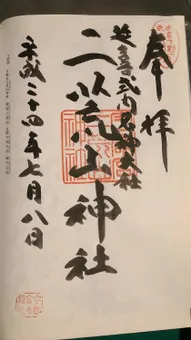 奉拝
延喜式内名神大社
二荒山神社
平成二十四年七月八日